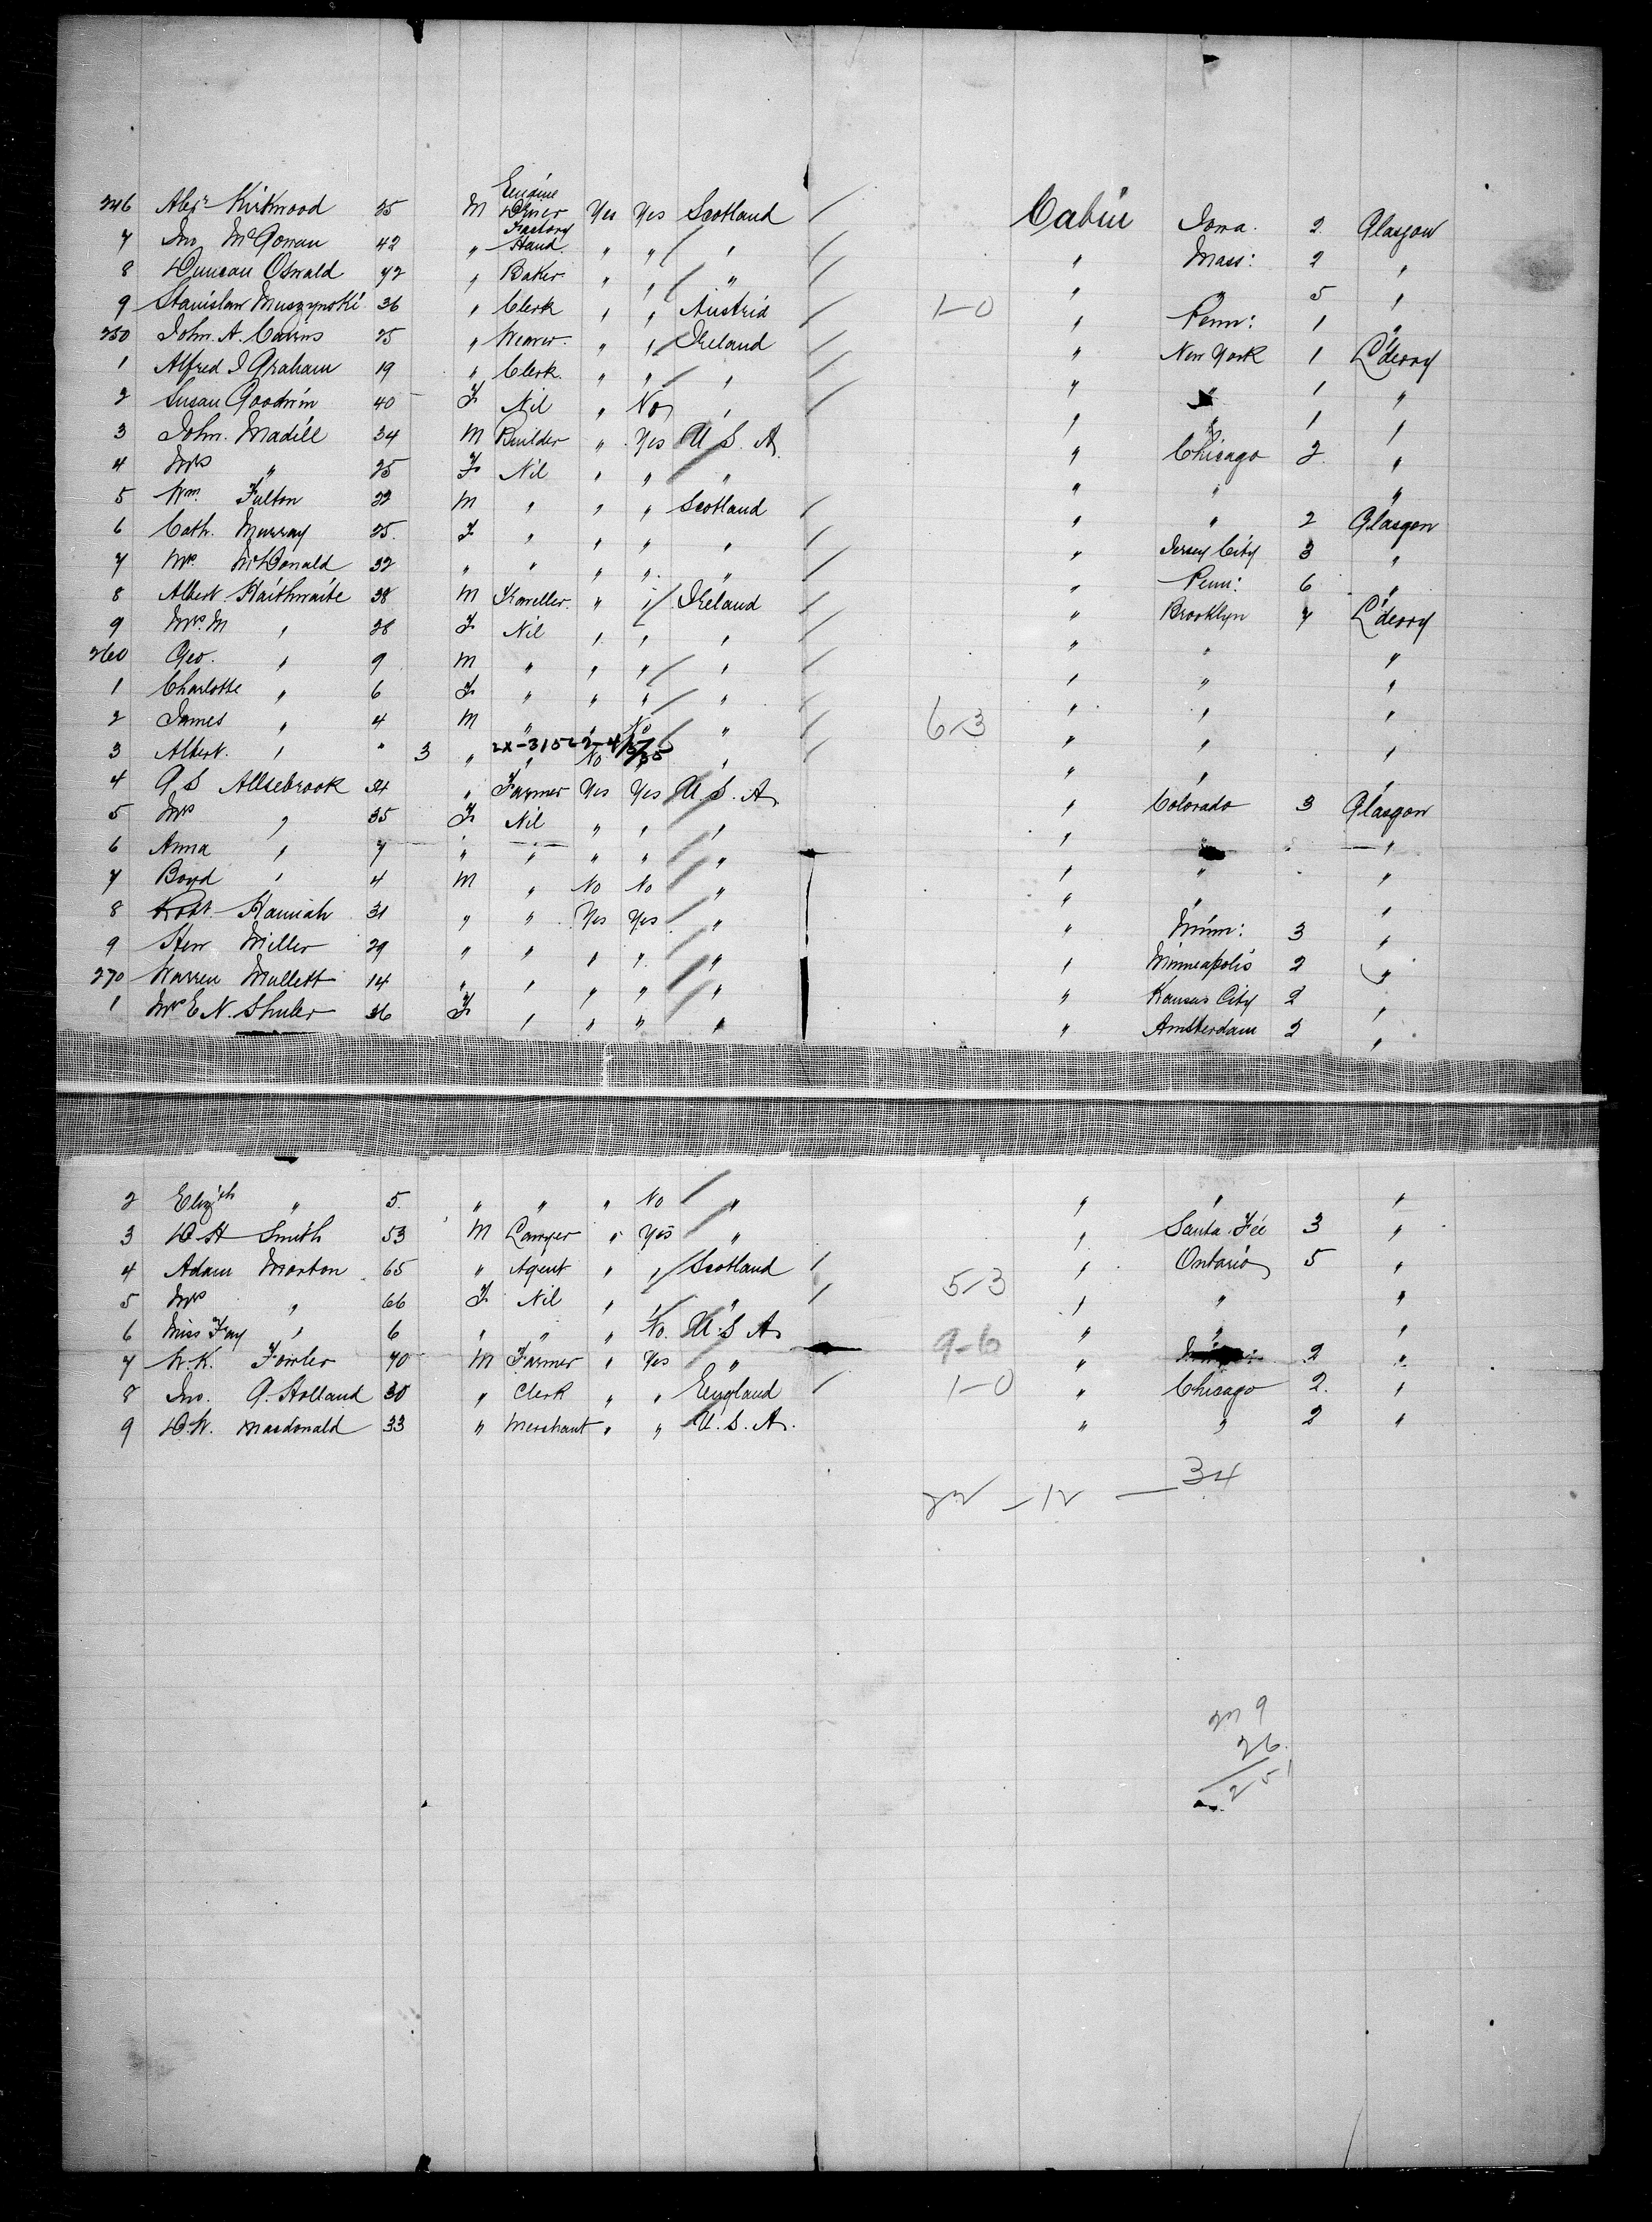 246 Alexr Kirkwood 25 M Engine Driver Yes Yes Scotland / Cabin Iowa. 2 Glasgow
7 Jno McGowan 42 " Factory Hand " " " / " Mass: 2 "
8 Duncan Oswald 42 " Baker " " " / " " 5 "
9 Stanislaw Muszynski 36 " Clerk " " Austria / 1-0 " Penn: 1 "
250 John. A. Cairns 25 " Weaver. " " Ireland / " New York 1 L'derry
1 Alfred J Graham 19 " Clerk. " " " / " " 1 "
2 Susan Goodwin 40 F Nil " No " / " " 1 "
3 John. Madill 34 M Builder " Yes U. S. A. " Chicago 2 "
4 Mrs " 25 F Nil " " " " " "
5 Wm. Fulton 22 M " " " Scotland / " " 2 Glasgow
6 Cath. Murray 25. F " " " " / " Jersey City 3 "
7 Mrs. McDonald 32 " " " " " / " Penn: 6 "
8 Albert Haithwaite 38 M Traveller. " " Ireland / " Brooklyn 7 L'derry
9 Mrs. M " 28 F Nil " " " / " " "
260 Geo. " 9 M " " " " / " " "
1 Charlotte " 6 F " " " " / " " "
2 James " 4 M " " No " / 6-3 " " "
3 Albert. " " 3 " 2X-3152 2-4/5/35 " No " / " " "
4 G S Allsebrook 34 " Farmer Yes Yes U. S. A. " Colorado 3 Glasgow
5 Mrs " 35 F Nil " " " " " "
6 Anna " 7 " " " " " " " "
7 Boyd " 4 M " No No " " " "
8 Robt. Hannah 31 " " Yes Yes " " Minn: 3 "
9 Stew Miller 29 " " " " " " Minneapolis 2 "
270 Warren Mullett 14 " " " " " " Kansas City 2 "
1 Mrs E N. Shuler 36 F " " " " " Amsterdam 2 "
2 Elizth " 5. " " " No " " " "
3 D. H Smith 53 M Lawyer " Yes " " Santa Fee 3 "
4 Adam Morton 65 " Agent " " Scotland / " Ontario 5 "
5 Mrs " 66 F Nil " " " / 5-3 " " "
6 Miss Fay " 6 " " " No. U. S. A. " " "
7 W. K. Fowler 70 M Farmer " Yes " 9-6 " 2 "
8 Jno. G. Holland 30 " Clerk " " England / 1-0 " Chicago 2. "
9 D. W. Macdonald 33 " Merchant " " U. S. A. " " 2 "
22 - 12 - 34
9
26
251